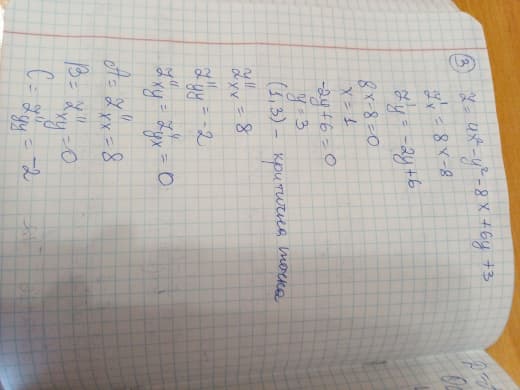 ③ z = 4x² - y² - 8x + 6y + 3
z'x = 8x - 8
z'y = -2y + 6
8x - 8 = 0
x = 1
-2y + 6 = 0
y = 3
(1, 3) - критична точка
z''xx = 8
z''yy = 2
z''xy = z''yx = 0
A = z''xx = 8
B = z''xy = 0
C = z''yy = -2